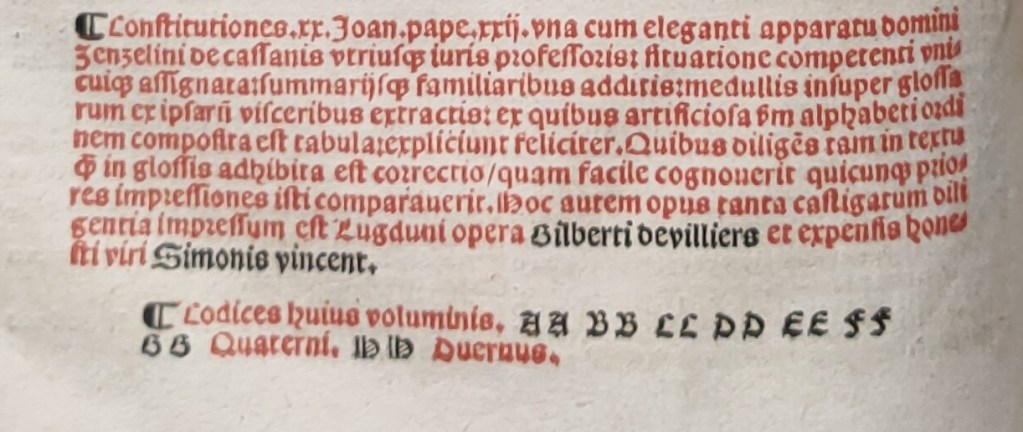 ¶ Constitutiones.xx. Joan. pape.xxij. vna cum eleganti apparatu domini
Zenzelini de cassanis vtriusqꝫ iuris professoris: situatione competenti vni⸗
cuiqꝫ assignata: summarijsqꝫ familiaribus additis: medullis insuper glossa
rum ex ipsarū visceribus extractis: ex quibus artificiosa ẜm alphabeti ordi
nem composita est tabula: expliciunt feliciter. Quibus diligēs tam in textu
ꝙ̄ in glossis adhibita est correctio/quam facile cognouerit quicunqꝫ prio⸗
res impressiones isti comparauerit. Hoc autem opus tanta castigatum dili
gentia impressum est Lugduni opera Gilberti devilliers et expensis hone⸗
sti viri Simonis vincent.
¶ Codices huius voluminis. AA BB CC DD EE FF
GG Quaterni. HH Duernus.